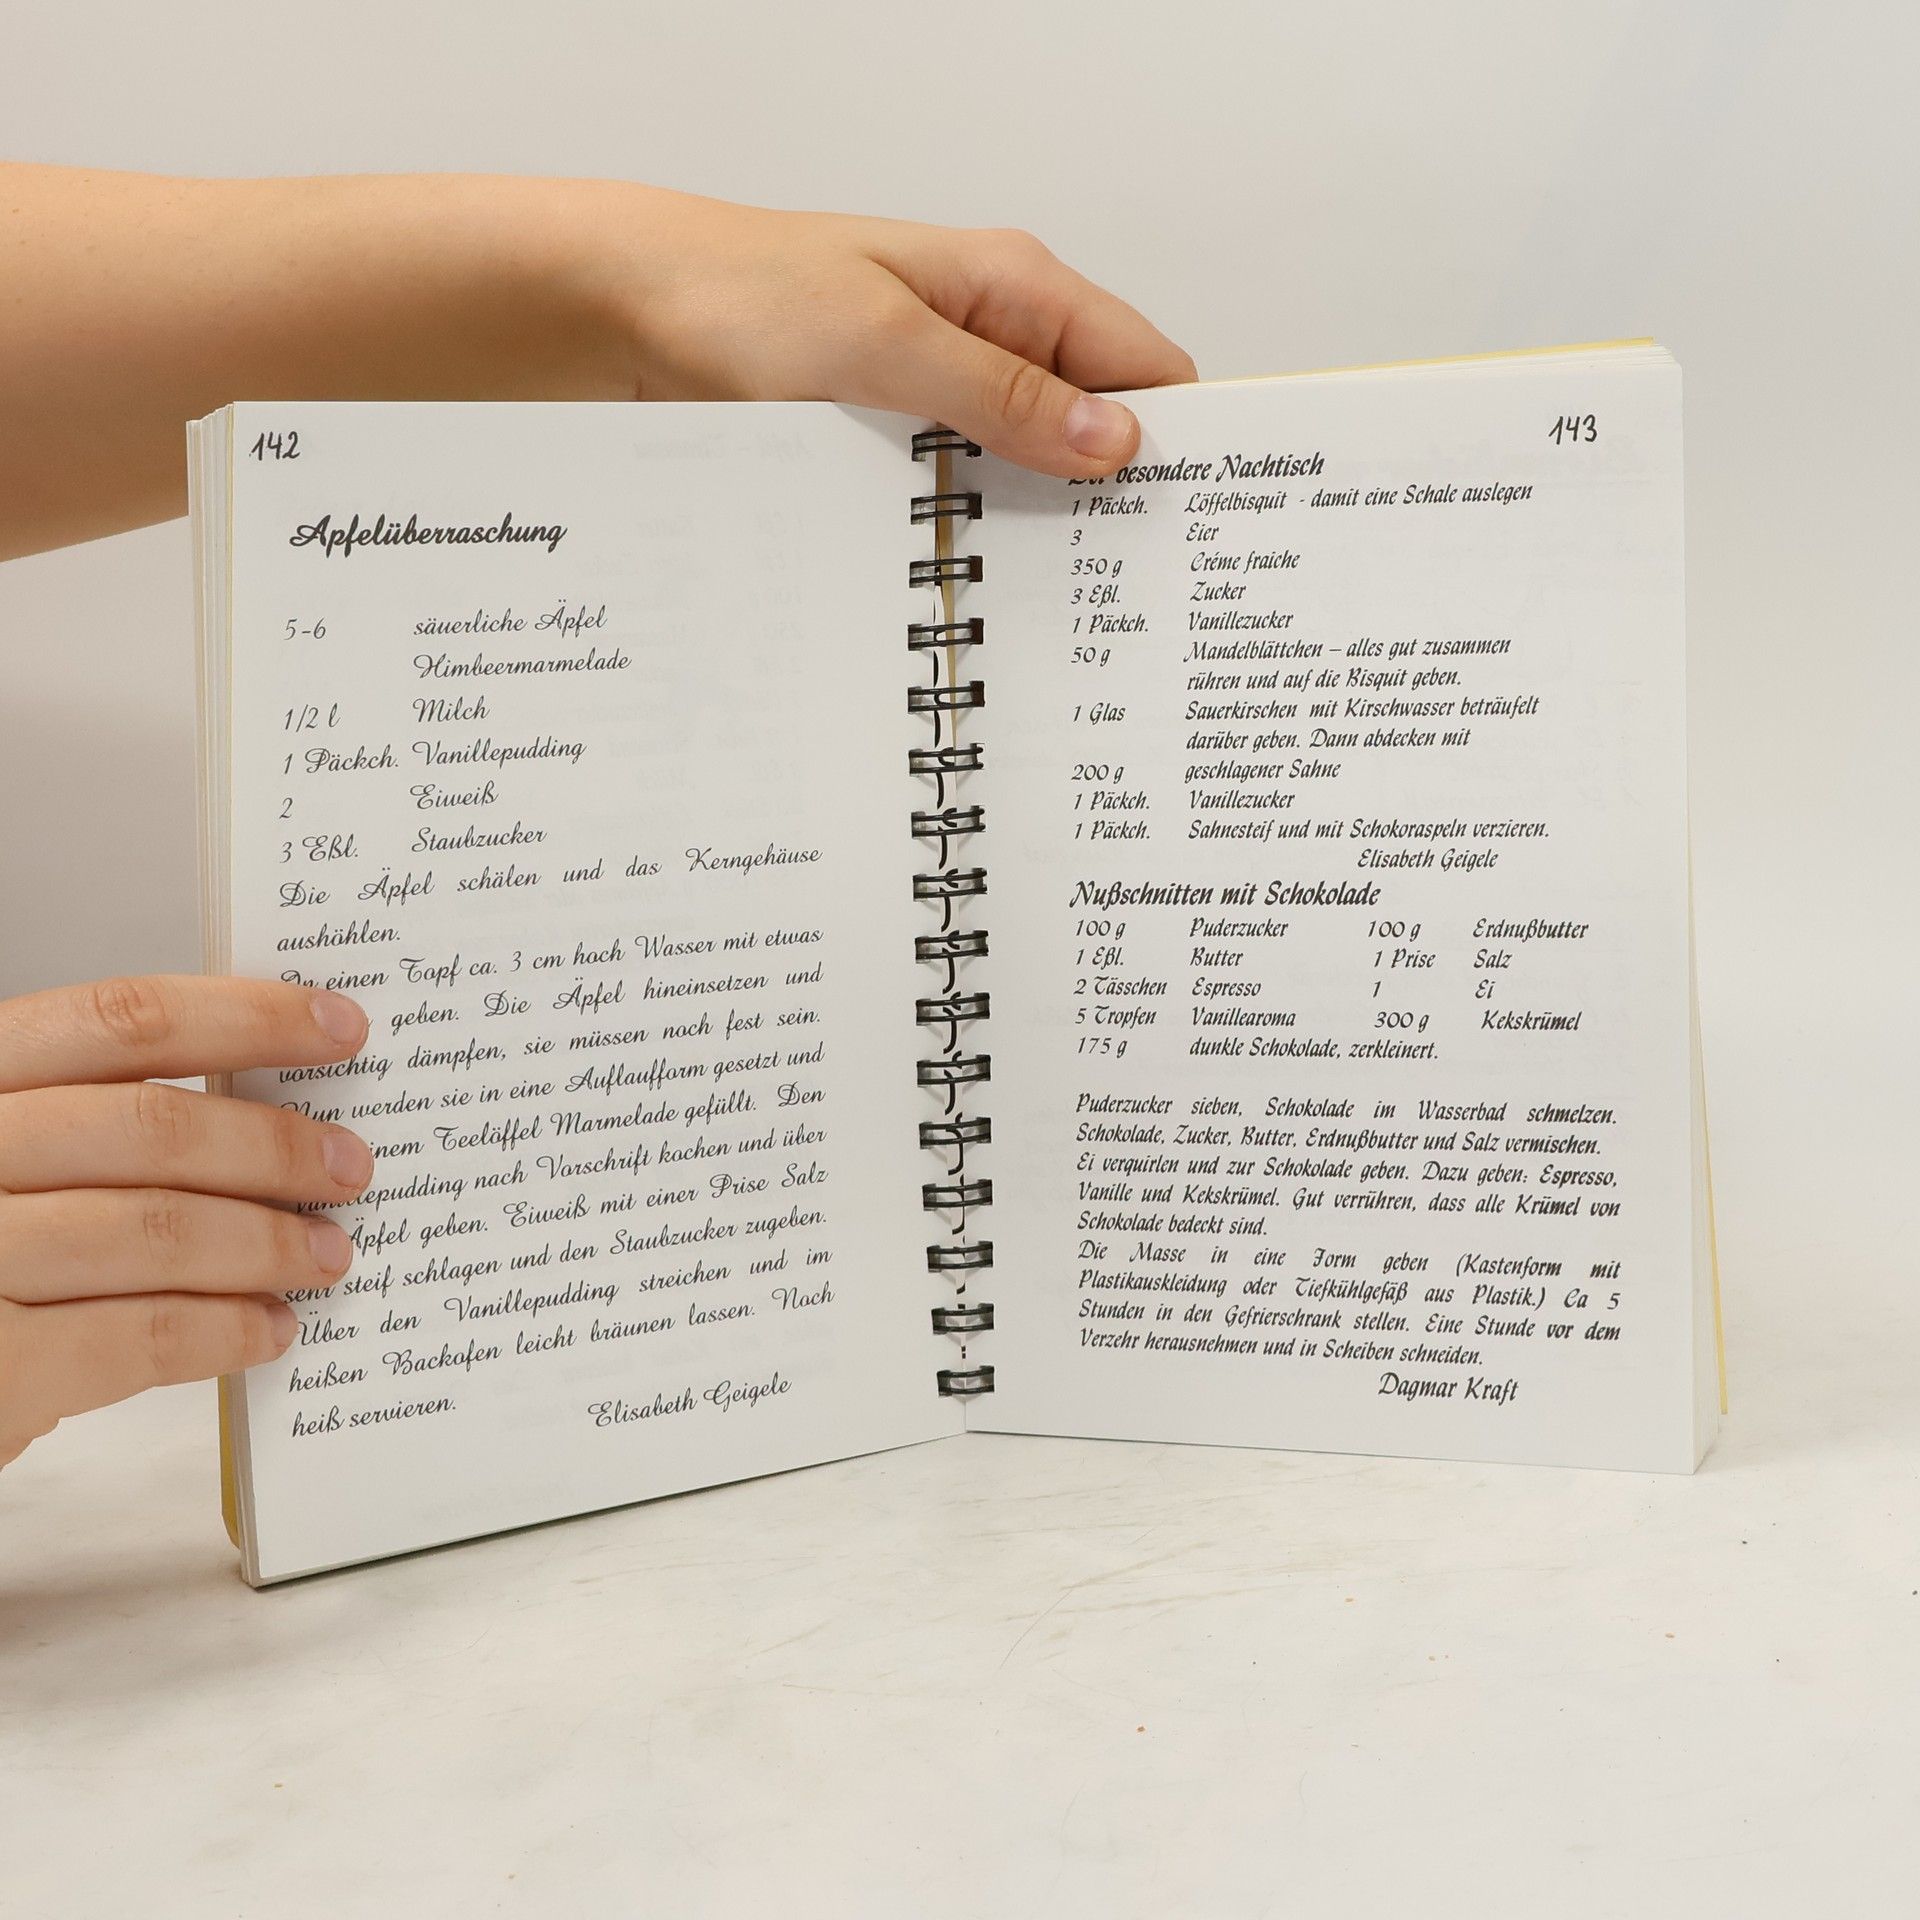 142
Apfelüberraschung
5-6 säuerliche Äpfel
Himbeermarmelade
1/2 l Milch
1 Päckch. Vanillepudding
2 Eiweiß
3 Eßl. Staubzucker
Die Äpfel schälen und das Kerngehäuse
aushöhlen.
In einen Topf ca. 3 cm hoch Wasser mit etwas
geben. Die Äpfel hineinsetzen und
vorsichtig dämpfen, sie müssen noch fest sein.
Nun werden sie in eine Auflaufform gesetzt und
einem Teelöffel Marmelade gefüllt. Den
Vanillepudding nach Vorschrift kochen und über
Äpfel geben. Eiweiß mit einer Prise Salz
sehr steif schlagen und den Staubzucker zugeben.
Über den Vanillepudding streichen und im
heißen Backofen leicht bräunen lassen. Noch
heiß servieren.
Elisabeth Geigele
143
besondere Nachtisch
1 Päckch. Löffelbisquit - damit eine Schale auslegen
3 Eier
350 g Créme fraiche
3 Eßl. Zucker
1 Päckch. Vanillezucker
50 g Mandelblättchen – alles gut zusammen
rühren und auf die Bisquit geben.
1 Glas Sauerkirschen mit Kirschwasser beträufelt
darüber geben. Dann abdecken mit
200 g geschlagener Sahne
1 Päckch. Vanillezucker
1 Päckch. Sahnesteif und mit Schokoraspeln verzieren.
Elisabeth Geigele
Nußschnitten mit Schokolade
100 g Puderzucker 100 g Erdnußbutter
1 Eßl. Butter 1 Prise Salz
2 Tässchen Espresso 1 Ei
5 Tropfen Vanillearoma 300 g Kekskrümel
175 g dunkle Schokolade, zerkleinert.
Puderzucker sieben, Schokolade im Wasserbad schmelzen.
Schokolade, Zucker, Butter, Erdnußbutter und Salz vermischen.
Ei verquirlen und zur Schokolade geben. Dazu geben: Espresso,
Vanille und Kekskrümel. Gut verrühren, dass alle Krümel von
Schokolade bedeckt sind.
Die Masse in eine Form geben (Kastenform mit
Plastikauskleidung oder Tiefkühlgefäß aus Plastik.) Ca 5
Stunden in den Gefrierschrank stellen. Eine Stunde vor dem
Verzehr herausnehmen und in Scheiben schneiden.
Dagmar Kraft